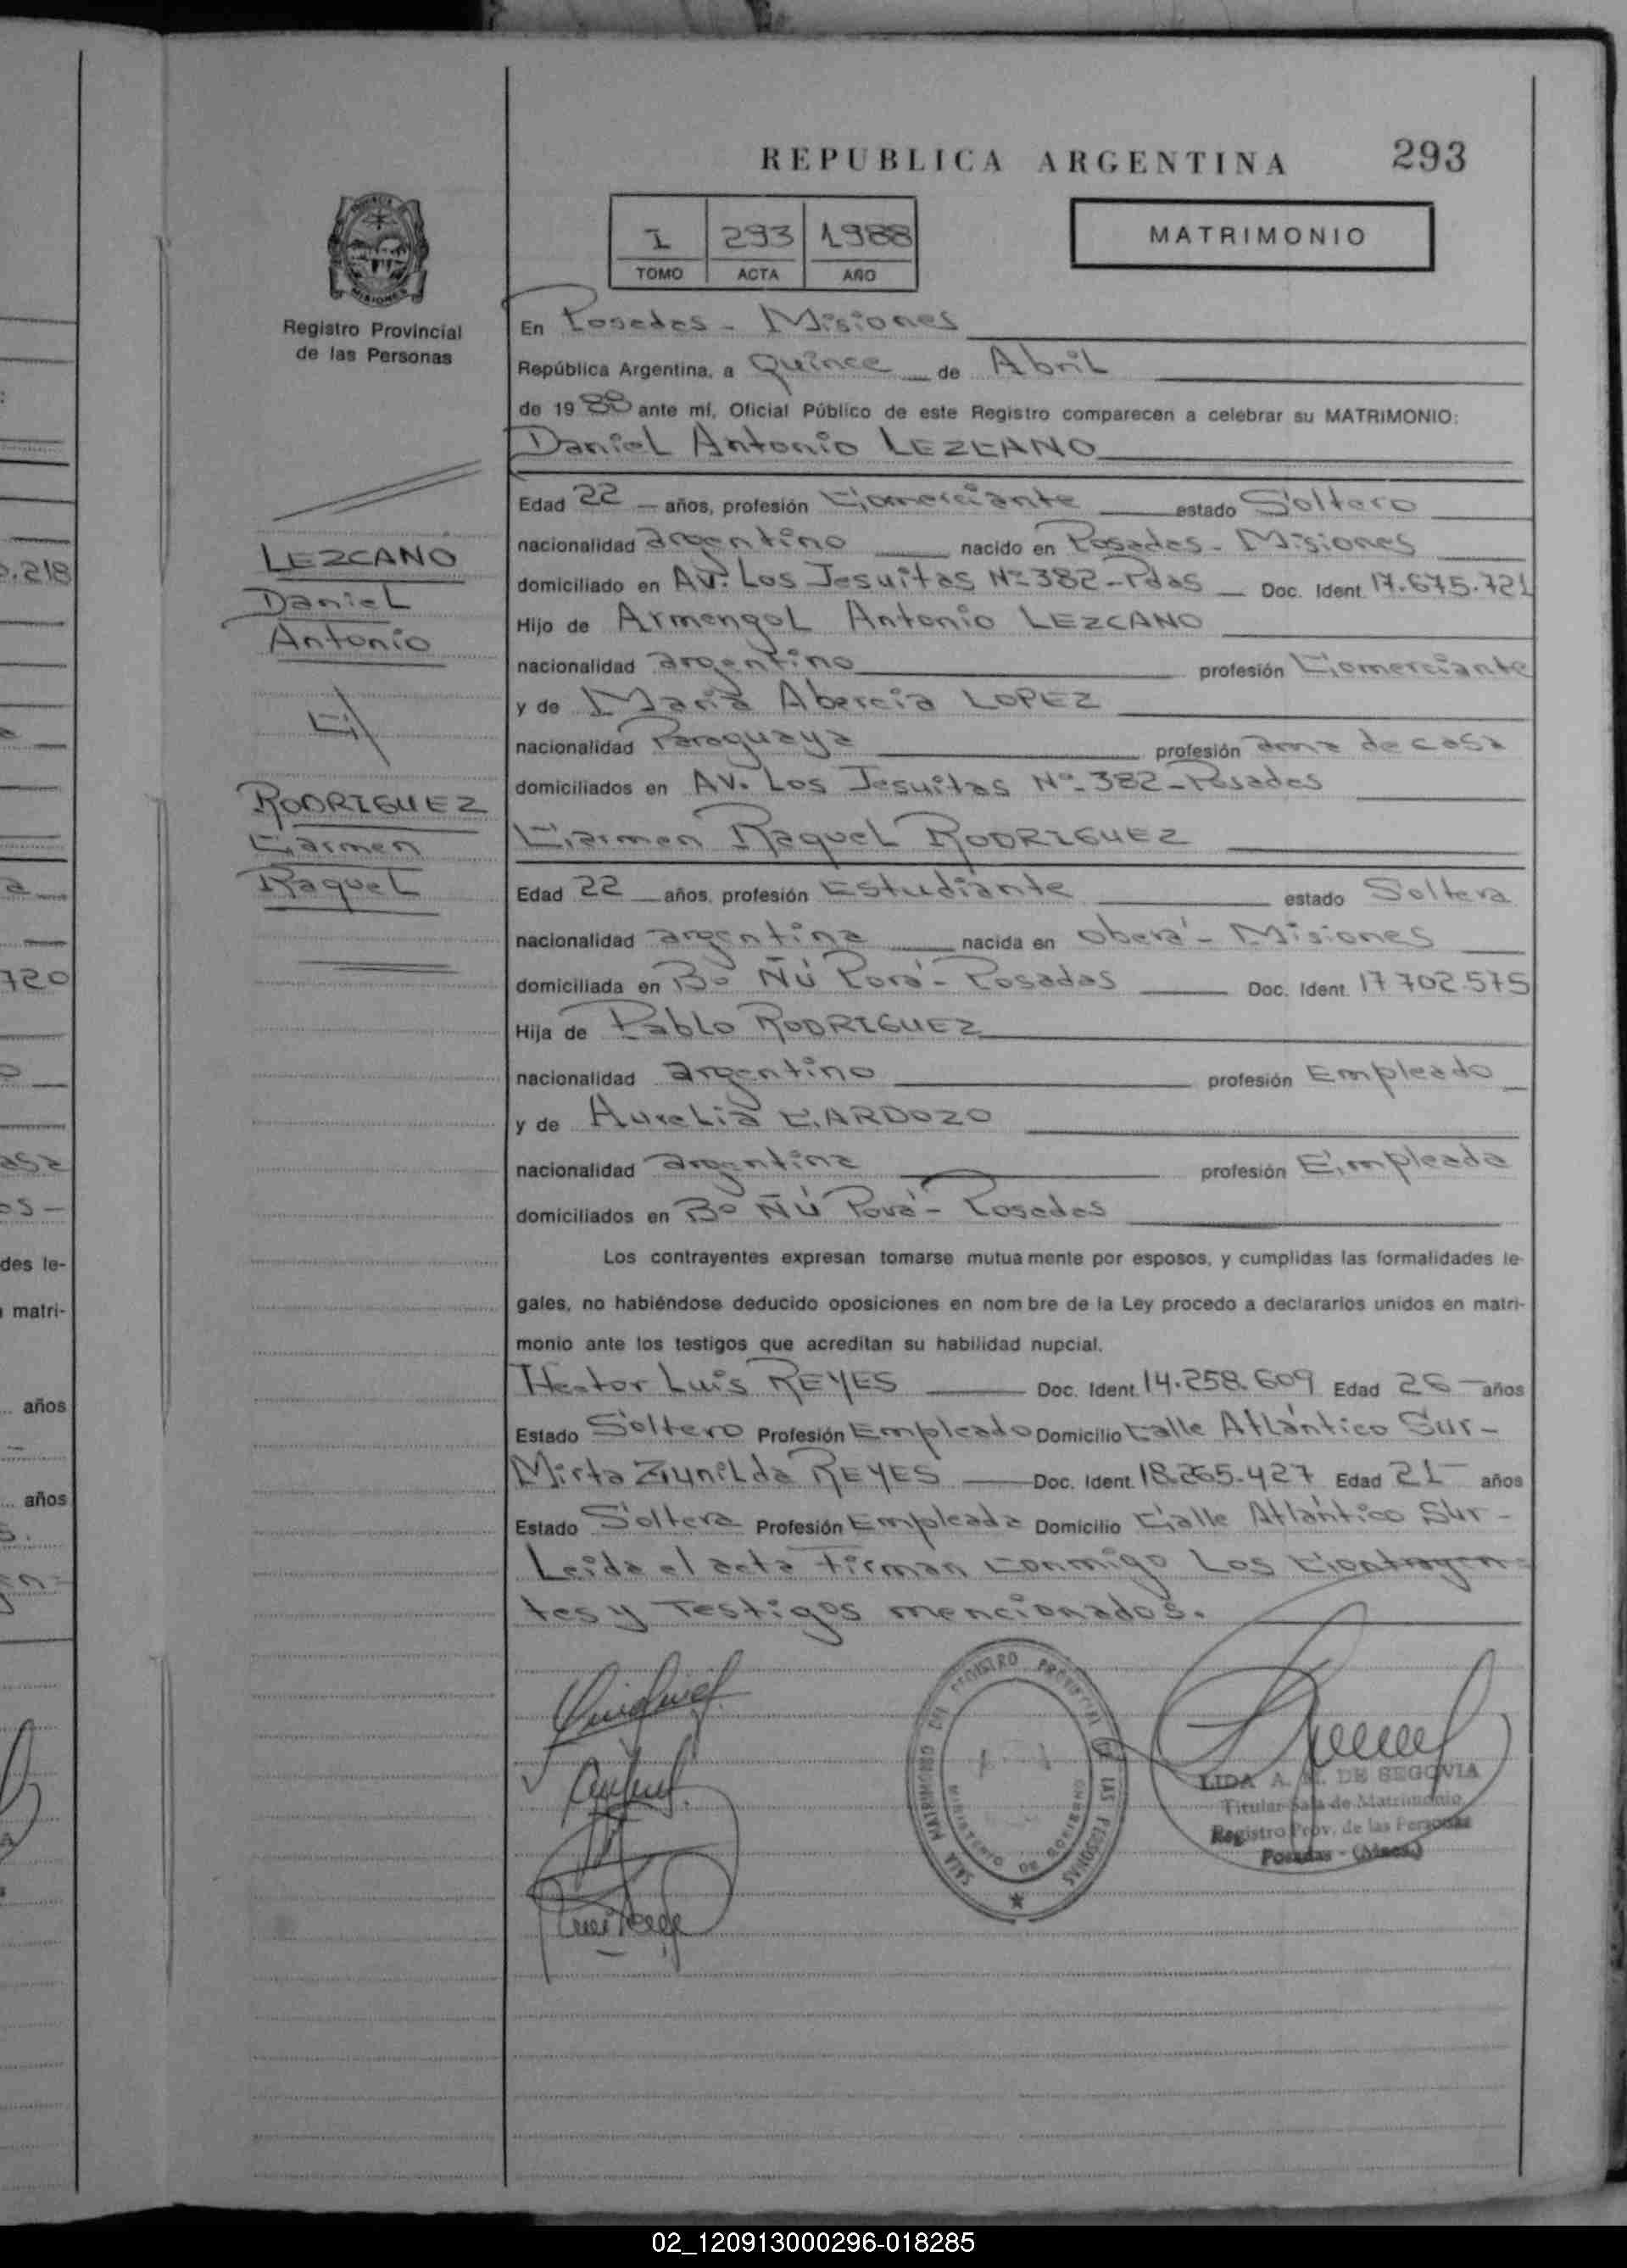 REPUBLICA ARGENTINA 293
I 293 1988
TOMO ACTA AÑO
MATRIMONIO
MISIONES
Registro Provincial
de las Personas
En Posadas - Misiones
República Argentina, a Quince de Abril
de 1988 ante mí, Oficial Público de este Registro comparecen a celebrar su MATRIMONIO:
Daniel Antonio LEZCANO
Edad 22 años, profesión Comerciante estado Soltero
nacionalidad argentino nacido en Posadas - Misiones
domiciliado en AV. Los Jesuitas Nº 382 - Pdas Doc. Ident. 17.675.721
Hijo de Armengol Antonio LEZCANO
nacionalidad argentino profesión Comerciante
y de Maria Abercia LOPEZ
nacionalidad Paraguaya profesión ama de casa
domiciliados en AV. Los Jesuitas Nº 382 - Posadas
Carmen Raquel RODRIGUEZ
Edad 22 años, profesión Estudiante estado Soltera
nacionalidad argentina nacida en Oberá - Misiones
domiciliada en Bº Ñú Porá - Posadas Doc. Ident. 17 702.575
Hija de Pablo RODRIGUEZ
nacionalidad argentino profesión Empleado
y de Aurelia CARDOZO
nacionalidad argentina profesión Empleada
domiciliados en Bº Ñú Porá - Posadas
Los contrayentes expresan tomarse mutua mente por esposos, y cumplidas las formalidades le-
gales, no habiéndose deducido oposiciones en nom bre de la Ley procedo a declararlos unidos en matri-
monio ante los testigos que acreditan su habilidad nupcial.
Hector Luis REYES Doc. Ident. 14.258.609 Edad 26 años
Estado Soltero Profesión Empleado Domicilio Calle Atlántico Sur -
Mirta Zunilda REYES Doc. Ident. 18.265.427 Edad 21 años
Estado Soltera Profesión Empleada Domicilio Calle Atlántico Sur -
Leida el acta Firman conmigo Los Contrayen-
tes y Testigos mencionados.
LEZCANO
Daniel
Antonio
C/
RODRIGUEZ
Carmen
Raquel
SALA MATRIMONIO DEL REGISTRO PROVINCIAL DE LAS PERSONAS
MINISTERIO DE GOBIERNO
LIDA A. M. DE SEGOVIA
Titular Sala de Matrimonio
Registro Prov. de las Personas
Posadas - (Mnes.)
.218
720
des le-
matri-
años
años
02_120913000296-018285